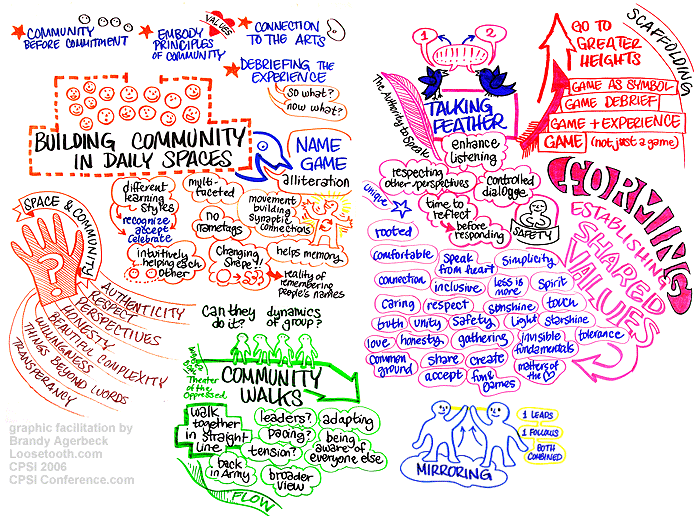 COMMUNITY
BEFORE COMMITMENT
EMBODY
PRINCIPLES
OF COMMUNITY
VALUES
CONNECTION
TO THE ARTS
DEBRIEFING
THE EXPERIENCE
SO WHAT?
NOW WHAT?
BUILDING COMMUNITY
IN DAILY SPACES
NAME
GAME
alliteration
different
learning
styles
recognize
accept
celebrate
multi-
faceted
no
nametags
movement
building
synaptic
connections
intuitively
helping each
other
Changing
Shape!
helps memory
reality of
remembering
people's names
SPACE & COMMUNITY
?
AUTHENTICITY
RESPECT
PERSPECTIVES
HONESTY
BEAUTIFUL COMPLEXITY
WILLINGNESS
THINGS BEYOND WORDS
TRANSPERANCY
Can they
do it?
dynamics
of group?
Theater of
the Oppressed
COMMUNITY
WALKS
walk
together
in straight
line
leaders?
adapting
pacing?
tension?
being
aware of
everyone else
back
in Army
broader
view
FLOW
graphic facilitation by
Brandy Agerbeck
Loosetooth.com
CPSI 2006
CPSI Conference.com
1
2
The Authority to Speak
TALKING
FEATHER
enhance
listening
respecting
other perspectives
controlled
dialogue
time to
reflect
before
responding
SAFETY
unique
rooted
comfortable
speak
from heart
simplicity
connection
inclusive
less is
more
Spirit
caring
respect
sunshine
touch
truth
unity
safety
Light
starshine
love
honesty
gathering
invisible
fundamentals
tolerance
common
ground
share
create
accept
fun &
games
matters of
the
MIRRORING
1 LEADS
1 FOLLOWS
BOTH
COMBINED
SCAFFOLDING
GO TO
GREATER
HEIGHTS
GAME AS SYMBOL
GAME DEBRIEF
GAME + EXPERIENCE
GAME (not just a game)
FORMING
ESTABLISHING
SHARED
VALUES